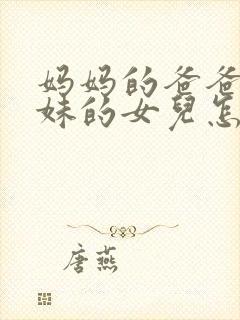 妈妈的爸爸
妹的女兒怎
唐燕